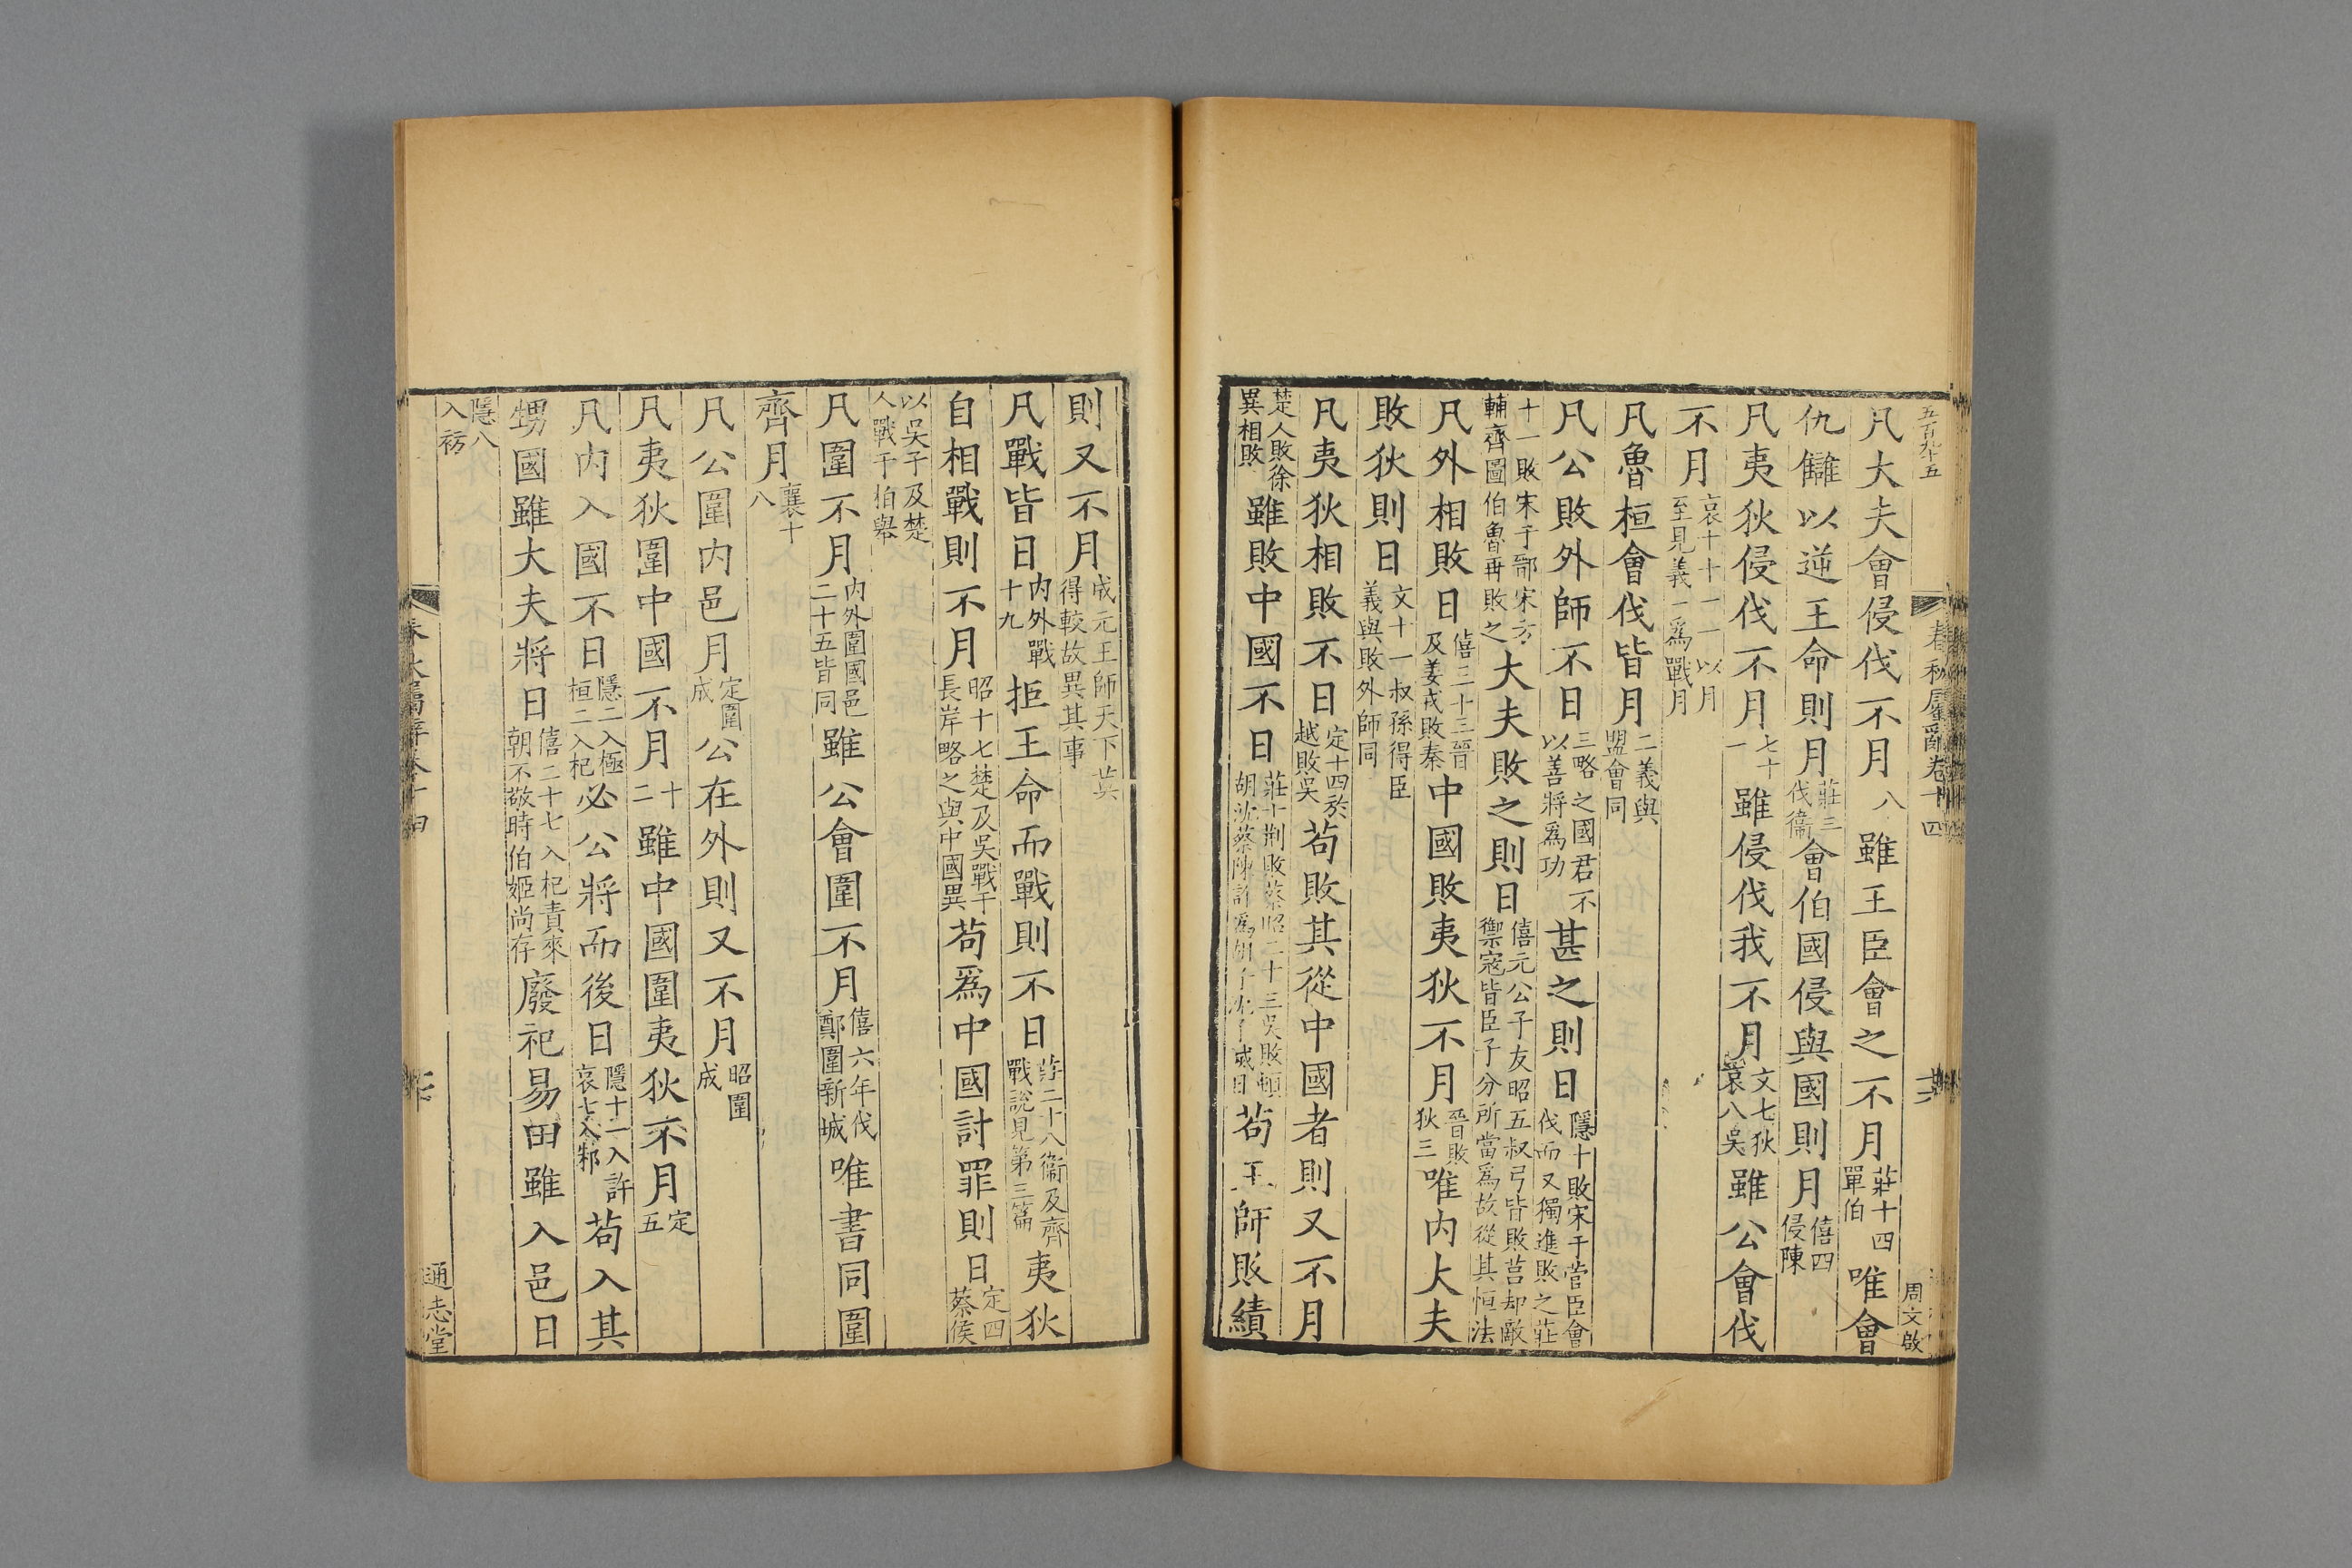 五百九十五
春秋屬辭卷十四
周文啟
凡大夫會侵伐不月八雖王臣會之不月莊十四單伯唯會
仇讎以逆王命則月莊三伐衞會伯國侵與國則月僖四侵陳
凡夷狄侵伐不月七十一雖侵伐我不月文七狄哀八吳雖公會伐
不月哀十十一一以月至見義一爲戰月
凡魯桓會伐皆月二義與盟會同
凡公敗外師不日三略之國君不以善將爲功甚之則日隱十敗宋于菅臣會伐而又獨進敗之莊
十一敗宋于鄑宋方輔齊圖伯魯再敗之大夫敗之則日僖元公子友昭五叔弓皆敗莒却敵禦寇皆臣子分所當爲故從其恒法
凡外相敗日僖三十三晉及姜戎敗秦中國敗夷狄不月晉敗狄三唯内大夫
敗狄則日文十一叔孫得臣義與敗外師同
凡夷狄相敗不日定十四於越敗吳苟敗其從中國者則又不月
楚人敗徐異相敗雖敗中國不日莊十荆敗蔡昭二十三吳敗頓胡沈蔡陳許爲胡子沈子滅日苟王師敗績
則又不月成元王師天下莫得較故異其事
凡戰皆日内外戰十九拒王命而戰則不日莊二十八衞及齊戰說見第三篇夷狄
自相戰則不月昭十七楚及吳戰于長岸略之與中國異苟爲中國討罪則日定四蔡侯
以吳子及楚人戰于伯舉
凡圍不月内外圍國邑二十五皆同雖公會圍不月僖六年伐鄭圍新城唯書同圍
齊月襄十八
凡公圍内邑月定圍成公在外則又不月昭圍成
凡夷狄圍中國不月十二雖中國圍夷狄不月定五
凡内入國不日隱二入極桓二入杞必公將而後日隱十一入許哀七入邾苟入其
甥國雖大夫將日僖二十七入杞責來朝不敬時伯姬尚存廢祀易田雖入邑日
隱八入祊
春秋屬辭卷十四
通志堂